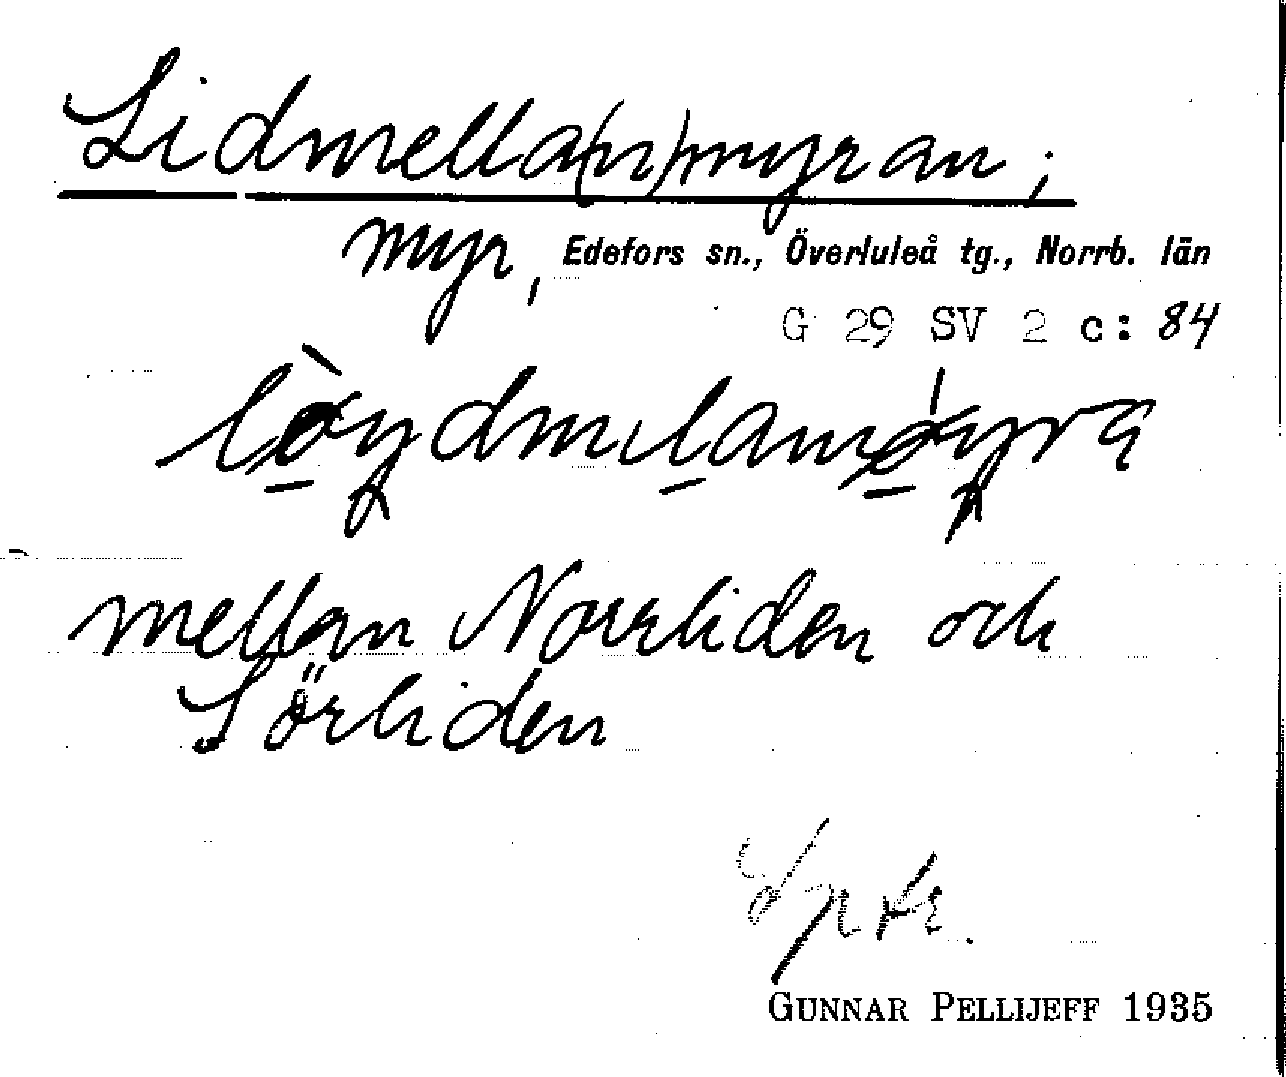 Lidmella(n)myran;
myr, Edefors sn., Överluleå tg., Norrb. län
G 29 SV 2 c: 84
mellan Norrliden och
Sörliden
GUNNAR PELLIJEFF 1935